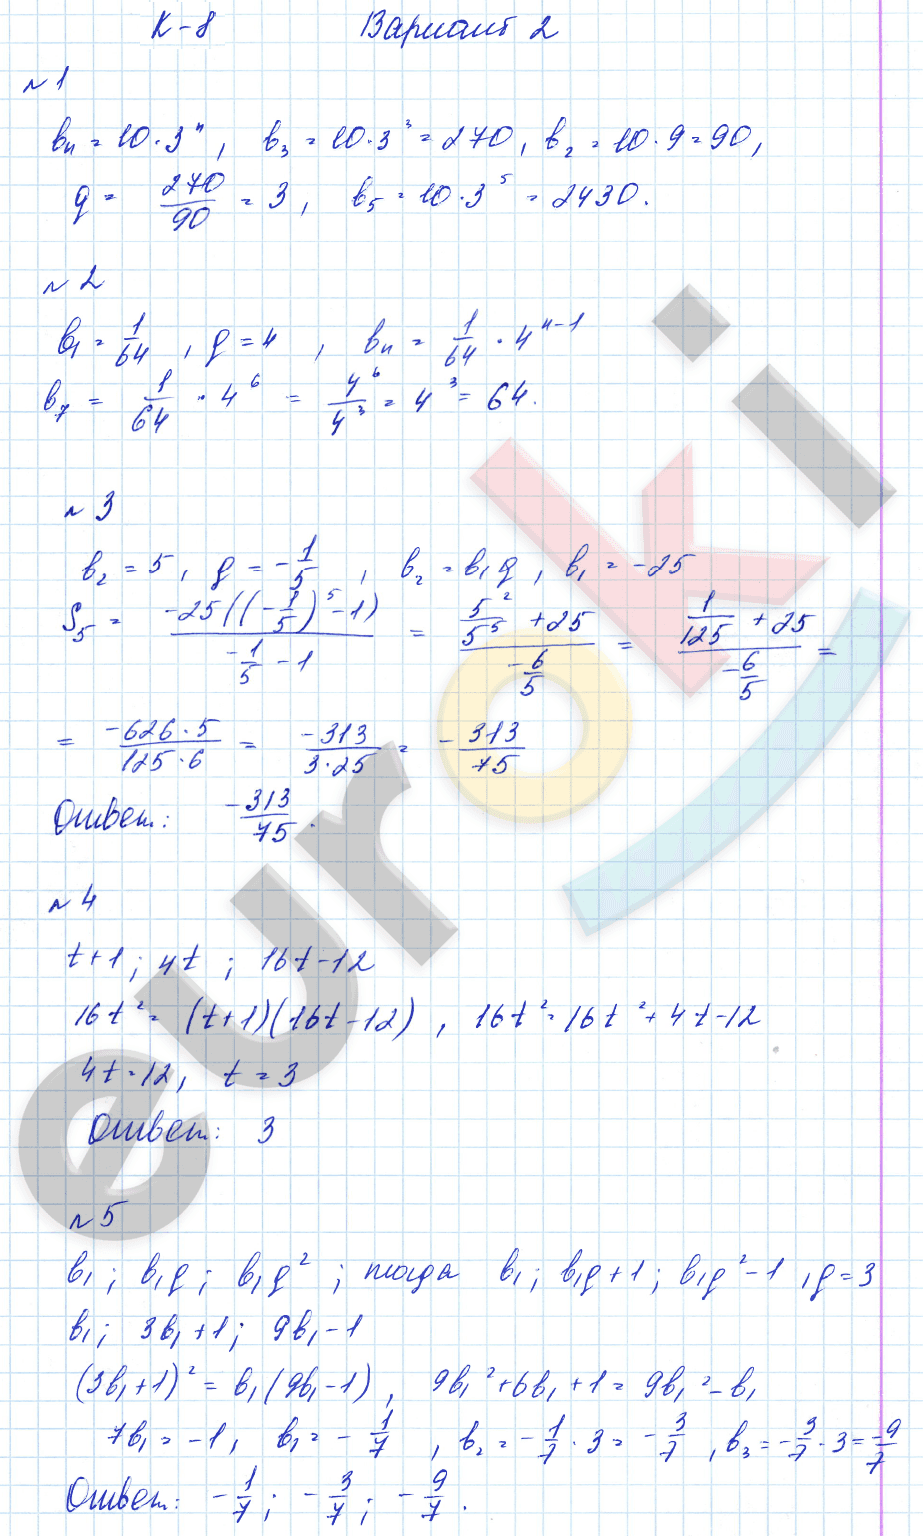 К-8 Вариант 2
№1
bₙ = 10·3ⁿ, b₃ = 10·3³ = 270, b₂ = 10·9 = 90,
q = 270/90 = 3, b₅ = 10·3⁵ = 2430.
№2
b₁ = 1/64, q = 4, bₙ = 1/64 · 4ⁿ⁻¹
b₇ = 1/64 · 4⁶ = 4⁶/4³ = 4³ = 64.
№3
b₂ = 5, q = -1/5, b₂ = b₁q, b₁ = -25
S₅ = -25((-1/5)⁵ - 1)/(-1/5 - 1) = (5²/5⁵ + 25)/(-6/5) = (1/125 + 25)/(-6/5) =
= -626·5/125·6 = -313/3·25 = -313/75
Ответ: -313/75.
№4
t+1; 4t; 16t-12
16t² = (t+1)(16t-12), 16t² = 16t² + 4t - 12
4t = 12, t = 3
Ответ: 3
№5
b₁; b₁q; b₁q²; тогда b₁; b₁q+1; b₁q²-1, q = 3
b₁; 3b₁+1; 9b₁-1
(3b₁+1)² = b₁(9b₁-1), 9b₁²+6b₁+1 = 9b₁²-b₁
7b₁ = -1, b₁ = -1/7, b₂ = -1/7·3 = -3/7, b₃ = -3/7·3 = -9/7
Ответ: -1/7; -3/7; -9/7.
euroki